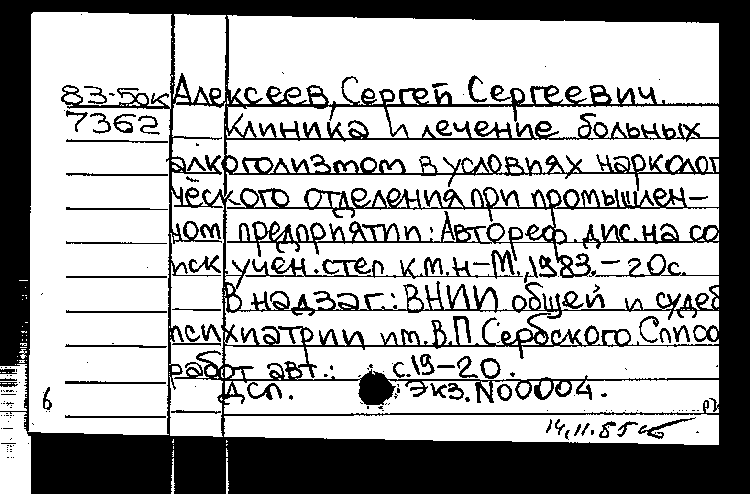 83-5ок Алексеев, Сергей Сергеевич.
7362 Клиника и лечение больных
алкоголизмом в условиях нарколог
ческого отделения при промышлен-
ном предприятии: Автореф. дис. на со
иск. учен. степ. к.м.н-М., 1983.-20с.
В надзаг.: ВНИИ общей и судеб
психиатрии им. В.П. Сербского. Списо
работ авт.: с.19-20.
6 ДСП. Экз. N00004.
14.11.85